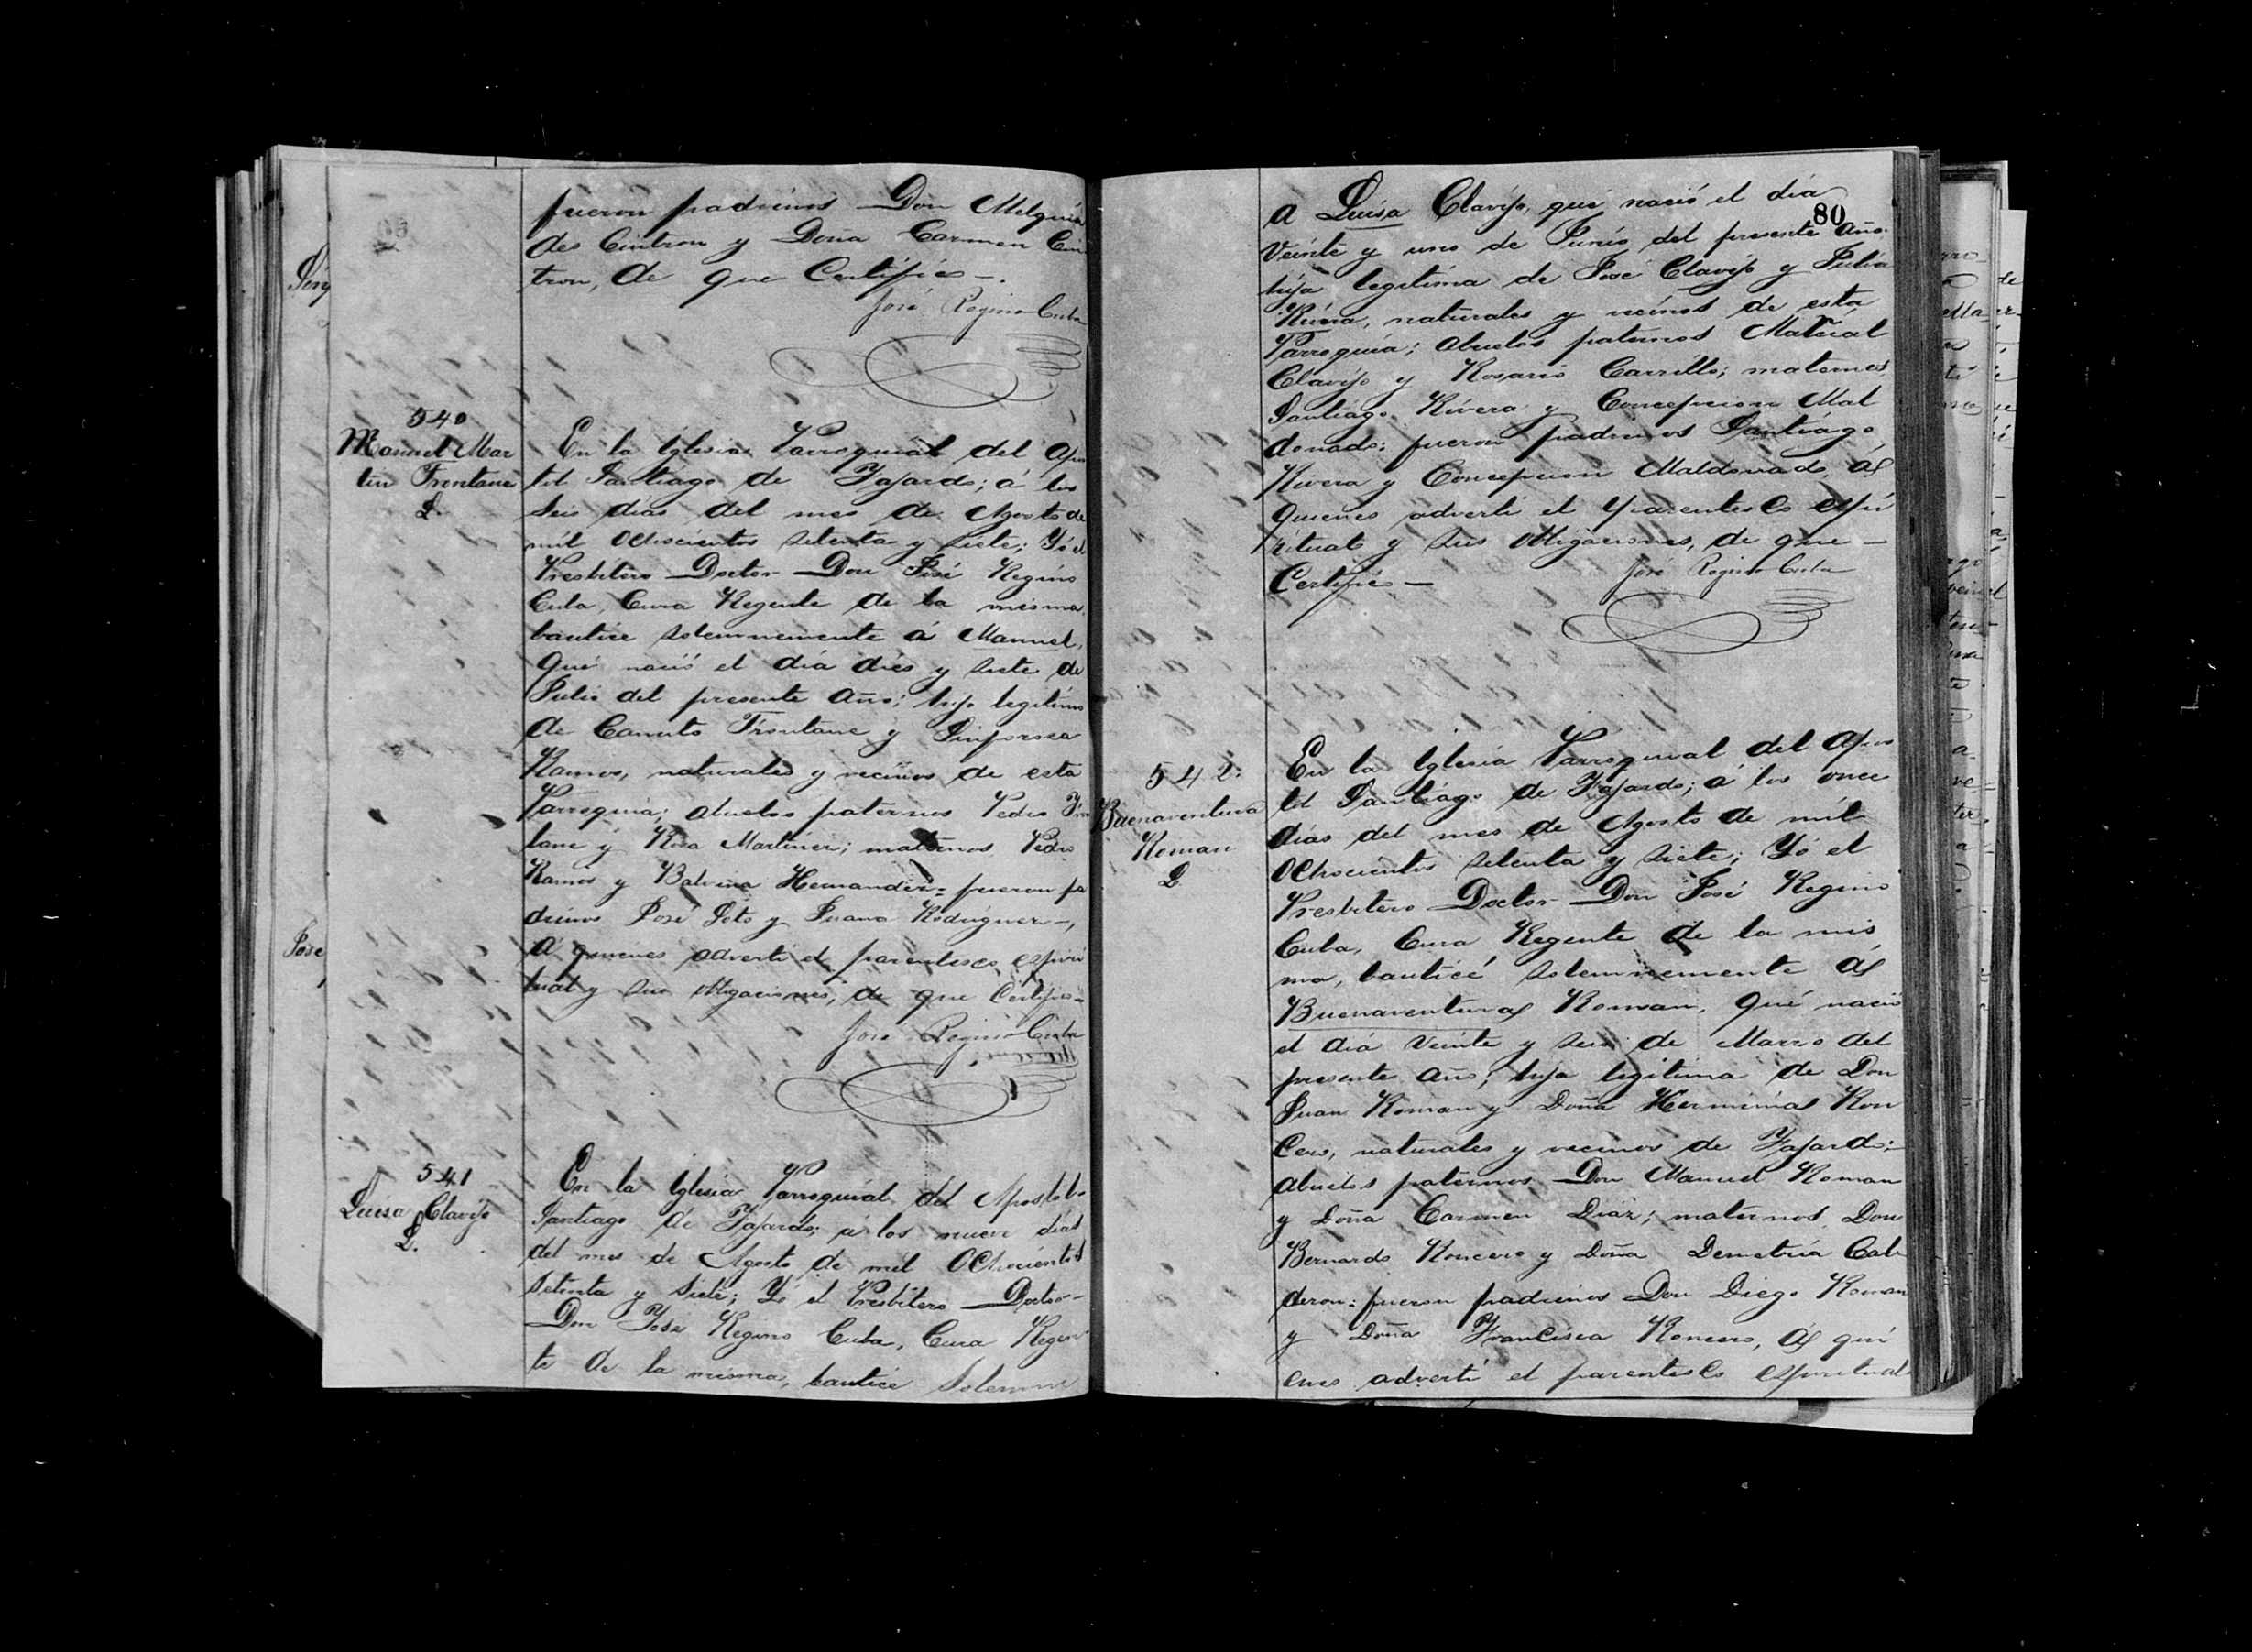 fueron padrinos Don Melquia
des Cintron y Doña Carmen Cin
tron, de que Certifico —.
José Regino Cuba
540
Manuel Mar
tin Frontane
L.
En la Iglesia Parroquial del Apos
tol Santiago de Fajardo; á los
Seis dias del mes de Agosto de
mil Ochocientos setenta y siete; Yó el
Presbitero Doctor Don José Regino
Cuba, Cura Regente de la misma,
bautice solemnemente á Manuel,
Qué nació el día diés y siete de
Julio del presente Año; hijo legitimo
de Canuto Frontane y Sinforosa
Ramos, naturales y vecinos de esta
Parroquia; abuelos paternos Pedro Fron
tane y Rosa Martinez; maternos Pedro
Ramos y Balvina Hernandez= fueron pa
drinos José Soto y Juana Rodriguez —,
á quienes adverti el parentesco espiri
tual y sus obligaciones, de que Certifico—
José Regino Cuba
541
Luisa Clavijo
L.
En la Iglesia Parroquial del Apostol
Santiago de Fajardo; a los nueve dias
del mes de Agosto de mil Ochocientos
Setenta y Siete; Yó el Presbitero Doctor
Don José Regino Cuba, Cura Regen
te de la misma, bautice Solemne
80
a Luisa Clavijo, qué nació el día
Veinte y uno de Junio del presente Año.
hija legitima de José Clavijo y Julia
Rivera, naturales y vecinos de esta
Parroquia; Abuelos paternos
Clavijo y Rosario Carrillo; maternos
Santiago Rivera y Concepcion Mal
donado: fueron padrinos Santiago
Rivera y Concepcion Maldonado á
quienes adverti el parentesco espi
ritual y sus obligaciones, de que —
Certifico —
José Regino Cuba
542:
Buenaventura
Roman
L
En la Iglesia Parroquial del Apos
tol Santiago de Fajardo; á los once
días del mes de Agosto de mil
Ochocientos setenta y siete; Yó el
Presbitero Doctor Don José Regino
Cuba, Cura Regente de la mis
ma, bauticé solemnemente á
Buenaventura Roman, Qué nació
el día veinte y seis de Marzo del
presente año; hija legitima de Don
Juan Roman y Doña Herminia Ron
cero, naturales y vecinos de Fajardo:
Abuelos paternos Don Manuel Roman
y Doña Carmen Diaz; maternos, Don
Bernardo Roncero y Doña Demetria Cal
deron: fueron padrinos Don Diego Roman
y Doña Francisca Roncero, á qui
enes advertí el parentesco espiritual